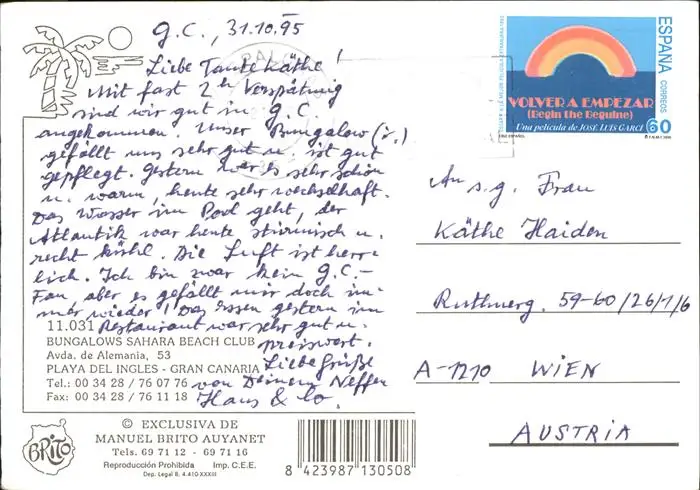 G.C., 31.10.95
Liebe Tante Käthe!
Mit fast 2h Verspätung
sind wir gut in G.C.
angekommen. Unser Bungalow (i.)
gefällt uns sehr gut u. ist gut
gepflegt. Gestern war es sehr schön
u. warm, heute sehr wechselhaft.
Das Wasser im Pool geht, der
Atlantik war heute stürmisch u.
recht kühl. Die Luft ist herr-
lich. Ich bin zwar kein G.C.-
Fan aber es gefällt mir doch im-
mer wieder! Das Essen gestern im
Restaurant war sehr gut u.
preiswert.
Liebe Grüße
von Deinem Neffen
Hans & Co.
11.031
BUNGALOWS SAHARA BEACH CLUB
Avda. de Alemania, 53
PLAYA DEL INGLES - GRAN CANARIA
Tel.: 00 34 28 / 76 07 76
Fax: 00 34 28 / 76 11 18
BRITO
© EXCLUSIVA DE
MANUEL BRITO AUYANET
Tels. 69 71 12 - 69 71 16
Reproducción Prohibida Imp. C.E.E.
Dep. Legal B. 4.410-XXXIII
8 423987 130508
ESPAÑA
CORREOS
VOLVER A EMPEZAR
(Begin the Beguine)
Una película de JOSÉ LUIS GARCI
60
An s.g. Frau
Käthe Haiden
Ruthnerg. 59-60/26/1/6
A-1210 WIEN
AUSTRIA